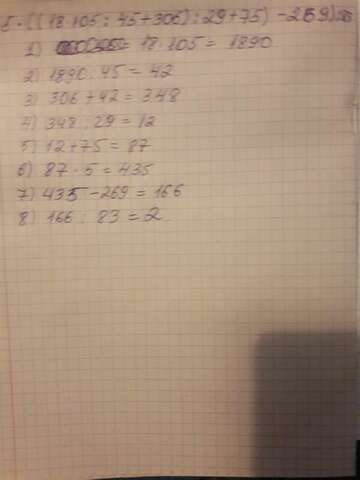 5·((18·105:45+306):29+75)-269)
1) = 18·105 = 1890
2) 1890:45 = 42
3) 306+42 = 348
4) 348:29 = 12
5) 12+75 = 87
6) 87·5 = 435
7) 435-269 = 166
8) 166 : 83 = 2